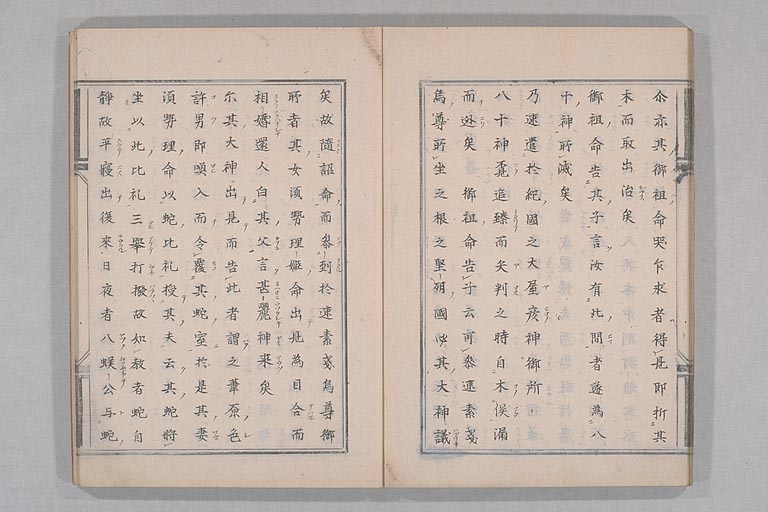 尒亦其御祖命哭乍求者得見即折其
木而取出活矣
御祖命告其子言汝有此間者遂為八
十神所滅矣
乃速遣於紀國之大屋彦神御所
八十神覓追臻而矢刺之時自木俣漏
而逃矣御祖命告子云可參速素戔
烏尊所坐之根之堅州國必其大神議
矣故隨詔命而參到於速素戔烏尊御
所者其女須勢理姫命出見為目合而
相婚還入白其父言甚麗神來矣
尒其大神出見而告此者謂之葦原色
許男即喚入而令覆其蛇室於是其妻
須勢理命以蛇比礼授其夫云其蛇將
坐以此比礼三舉打撥故如教者蛇自
靜故平寢出後来日夜者八蜈公与蛇